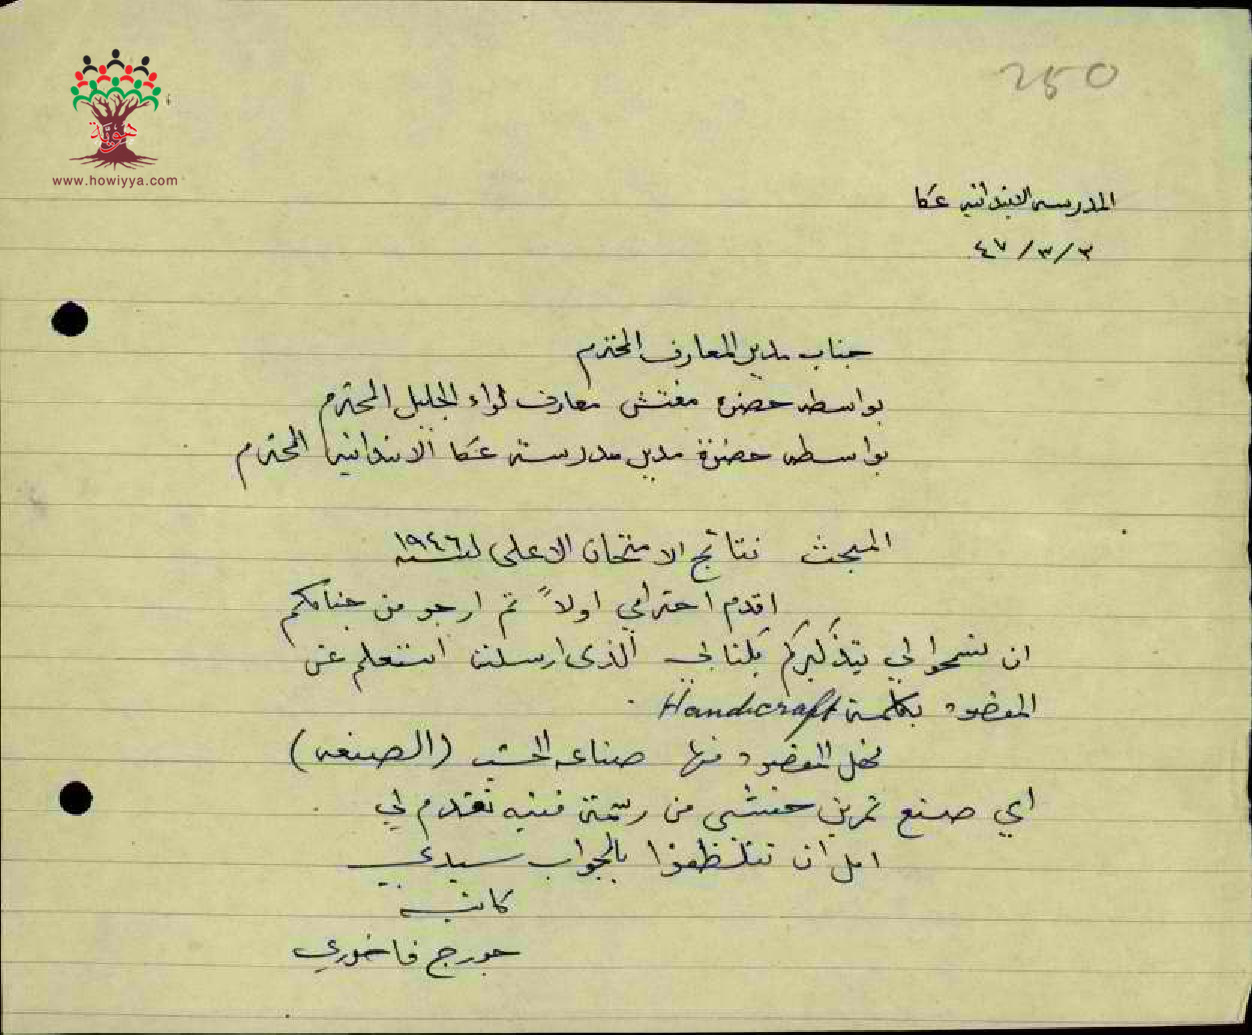 250
هوية
www.howiyya.com
المدرسه الابتدائيه عكا
٣/٣/٤٧
جناب مدير المعارف المحترم
بواسطه حضره مفتش معارف لواء الجليل المحترم
بواسطه حضرة مدير مدرسة عكا الابتدائيه المحترم
المبحث نتائج الامتحان الاعلى لسنه ١٩٤٦
اقدم احترامي اولاً ثم ارجو من جنابكم
ان تسمحوا لي بتذكيركم بكتابي الذي ارسلته استعلم عن
المقصود بكلمة Handicraft
فهل المقصود منها صناعه الخشب (الصنعه)
اي صنع تمرين خشبي من رسمة فنيه تقدم لي
امل ان تتلطفوا بالجواب سيدي
كاتبه
جورج فاخوري